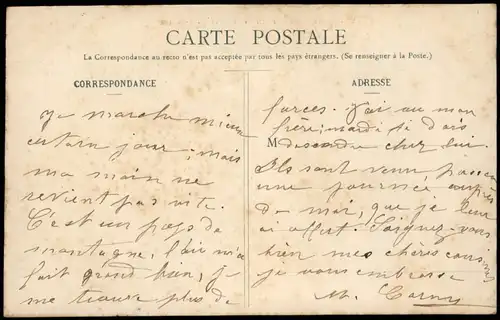 CARTE POSTALE
La Correspondance au recto n'est pas acceptée par tous les pays étrangers. (Se renseigner à la Poste.)
CORRESPONDANCE
je marche mieux
certain jour, mais
ma main ne
revient pas vite.
C'est un pays de
montagne, l'air m'a
fait grand bien, je
me trouve plus de
ADRESSE
forces. J'ai au mon
frère, mardi je dois
M
descendre chez lui.
Ils sont venu passer
une journée auprès
de moi, que je leur
ai offert. Soignez-vous
bien mes chères cousines
je vous embrasse
M.